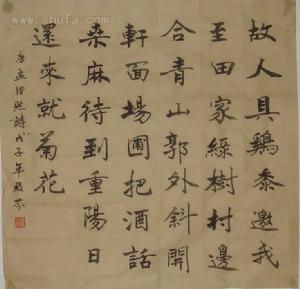 故人具鷄黍邀我
至田家綠樹村邊
合青山郭外斜開
軒面場圃把酒話
桑麻待到重陽日
還來就菊花
唐孟浩然詩戊子年
www.shufa.com